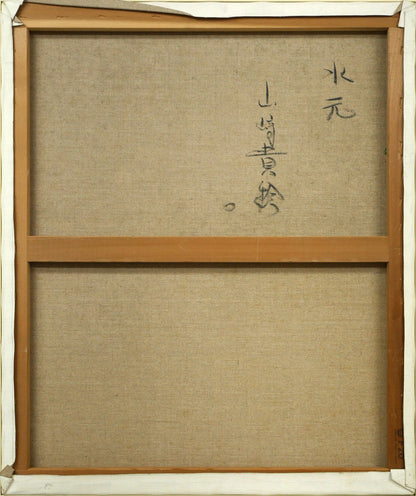 水元
山崎貴